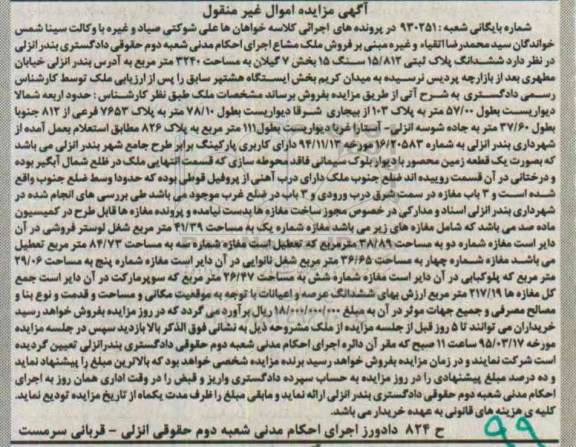 آگهی مزایده اموال غیر منقول
شماره بایگانی شعبه: ۹۳۰۲۵۱ در پرونده های اجرائی کلاسه خواهان ها علی شوکتی صیاد و غیره با وکالت سینا شمس
خواندگان سید محمدرضا اتقیاء و غیره مبنی بر فروش ملک مشاع اجرای احکام مدنی شعبه دوم حقوقی دادگستری بندر انزلی
در نظر دارد ششدانگ پلاک ثبتی ۱۵/۸۱۲ سنگ ۱۵ بخش ۷ گیلان به مساحت ۳۲۴۰ متر مربع به آدرس بندر انزلی خیابان
مطهری بعد از بازارچه پردیس نرسیده به میدان کریم بخش ایستگاه هشتپر سابق را پس از ارزیابی ملک توسط کارشناس
رسمی دادگستری به شرح آتی از طریق مزایده بفروش برساند مشخصات ملک طبق نظر کارشناس: حدود اربعه شمالا
دیواریست بطول ۵۷/۰۰ متر به پلاک ۱۰۳ از بیجاری شرقا دیواریست بطول ۷۸/۱۰ متر به پلاک ۷۶۵۳ فرعی از ۸۱۲ جنوبا
بطول ۳۷/۶۰ متر به جاده شوسه انزلی - آستارا غربا دیواریست بطول ۱۱۱ متر مربع به پلاک ۸۲۶ مطابق استعلام بعمل آمده از
شهرداری بندر انزلی به شماره ۱۶/۲۰۵۸۳ مورخه ۹۴/۱۱/۱۳ دارای کاربری پارکینگ برابر طرح جامع شهر بندر انزلی می باشد
که بصورت یک قطعه زمین محصور با دیوار بلوک سیمانی فاقد محوطه سازی که قسمت انتهایی ملک در ظلع شمال آبگیر بوده
و درختانی در آن قسمت روییده اند ضلع جنوب ملک دارای درب آهنی از پروفیل قوطی بوده که حدودا وسط ضلع جنوب واقع
شده است و ۳ باب مغازه در سمت شرق درب ورودی و ۳ باب در ضلع غرب موجود می باشد طی بررسی های انجام شده در
شهرداری بندر انزلی اسناد و مدارکی در خصوص مجوز ساخت مغازه ها بدست نیامده و پرونده مغازه ها قابل طرح در کمیسیون
ماده صد می باشد که شامل مغازه های زیر می باشد مغازه شماره یک به مساحت ۴۱/۳۹ متر مربع شغل لوستر فروشی در آن
دایر است مغازه شماره دو به مساحت ۳۸/۸۹ متر مربع که تعطیل است مغازه شماره سه به مساحت ۸۴/۷۳ متر مربع تعطیل
می باشد مغازه شماره چهار به مساحت ۳۶/۶۵ متر مربع شغل نانوایی در آن دایر است مغازه شماره پنج به مساحت ۲۹/۰۶
متر مربع که پلوکبابی در آن دایر است مغازه شماره شش به مساحت ۲۶/۴۷ متر مربع که سوپرمارکت در آن دایر است جمع
کل مغازه ها ۲۱۷/۱۹ متر مربع ارزش بهای ششدانگ عرصه و اعیانات با توجه به موقعیت مکانی و مساحت و قدمت و نوع بنا و
مصالح مصرفی و جمیع جهات موثر در آن به مبلغ ریال برآورد می گردد که در روز مزایده بفروش خواهد رسید
خریداران می توانند تا ۵ روز قبل از جلسه مزایده از ملک مشروحه ذیل به نشانی فوق الذکر بالا بازدید سپس در جلسه مزایده
مورخه ۹۵/۰۳/۱۷ ساعت ۱۱ صبح که مقر آن دائره اجرای احکام مدنی شعبه دوم حقوقی دادگستری بندرانزلی تعیین گردیده
است شرکت نمایند و در زمان مزایده بفروش خواهد رسید برنده مزایده شخصی خواهد بود که بالاترین مبلغ را پیشنهاد نماید
و ده درصد مبلغ پیشنهادی را در روز مزایده به حساب سپرده دادگستری واریز و قبض را در وقت اداری همان روز به اجرای
احکام مدنی شعبه دوم حقوقی دادگستری بندر انزلی ارائه نماید و مابقی مبلغ را ظرف مدت یکماه از تاریخ مزایده تودیع نماید.
کلیه ی هزینه های قانونی به عهده خریدار می باشد.
ح ۸۲۴ دادورز اجرای احکام مدنی شعبه دوم حقوقی انزلی - قربانی سرمست
۹۹